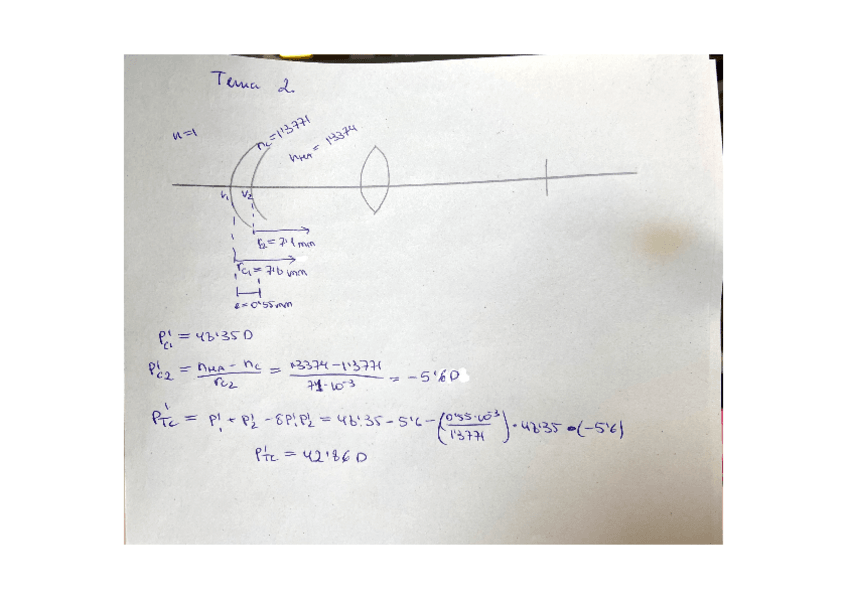 Tema 2.
n=1
nc=1'3771
nHA = 1'3374
V1 V2
r2 = 7'1 mm
rc1 = 7'6 mm
e = 0'55 mm
P'c1 = 48'35 D
P'c2 = (nHA - nc) / rc2 = (1'3374 - 1'3771) / (7'1·10⁻³) = -5'6 D
P'Tc = P'1 + P'2 - δP'1P'2 = 48'35 - 5'6 - (0'55·10⁻³ / 1'3771) · 48'35 · (-5'6)
P'Tc = 42'86 D